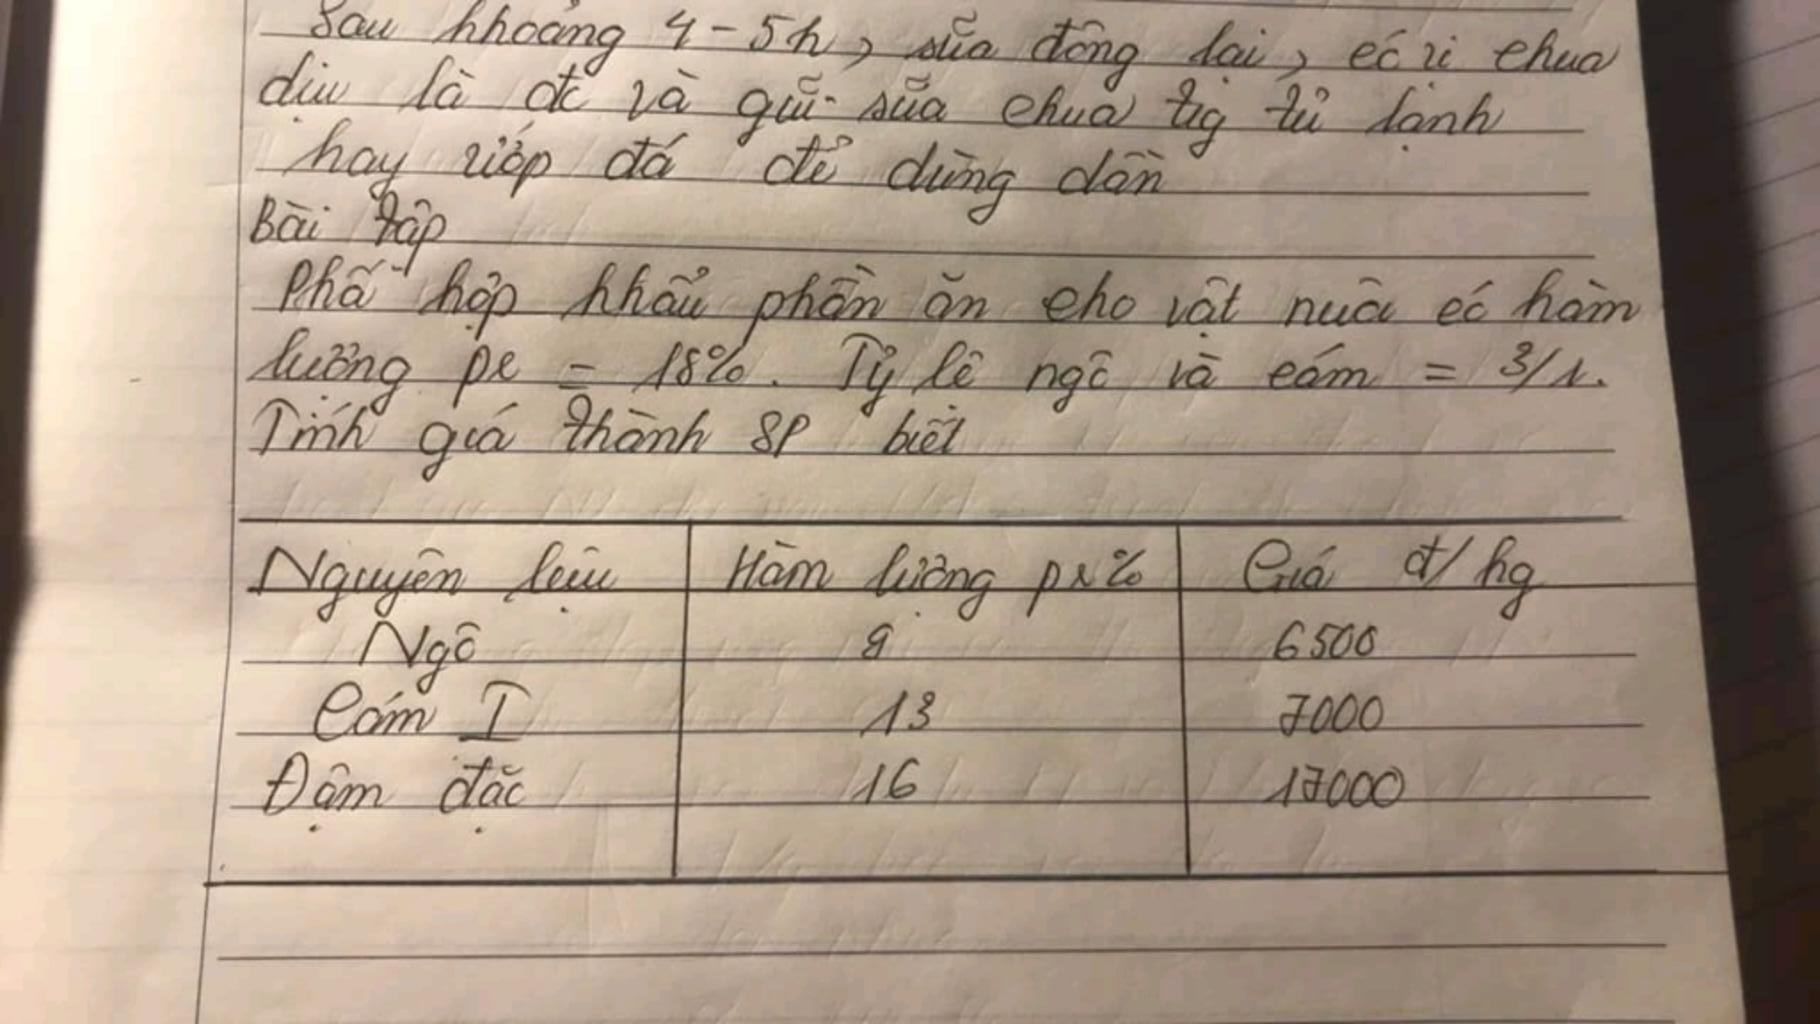 Sau khoảng 4-5h, sữa đông lại, có vị chua
dịu là đc và giữ sữa chua tg tủ lạnh
hay ướp đá để dùng dần
Bài tập
Phối hợp khẩu phần ăn cho vật nuôi có hàm
lượng pr = 18%. Tỷ lệ ngô và cám = 3/1.
Tính giá thành SP biết
Nguyên liệu Hàm lượng pr% Giá đ/kg
Ngô 9 6500
Cám I 13 7000
Đậm đặc 16 17000